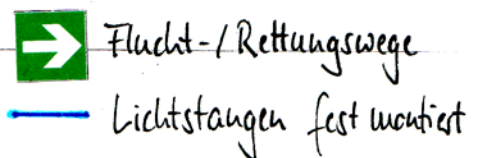 Flucht-/Rettungswege
Lichtstangen fest montiert